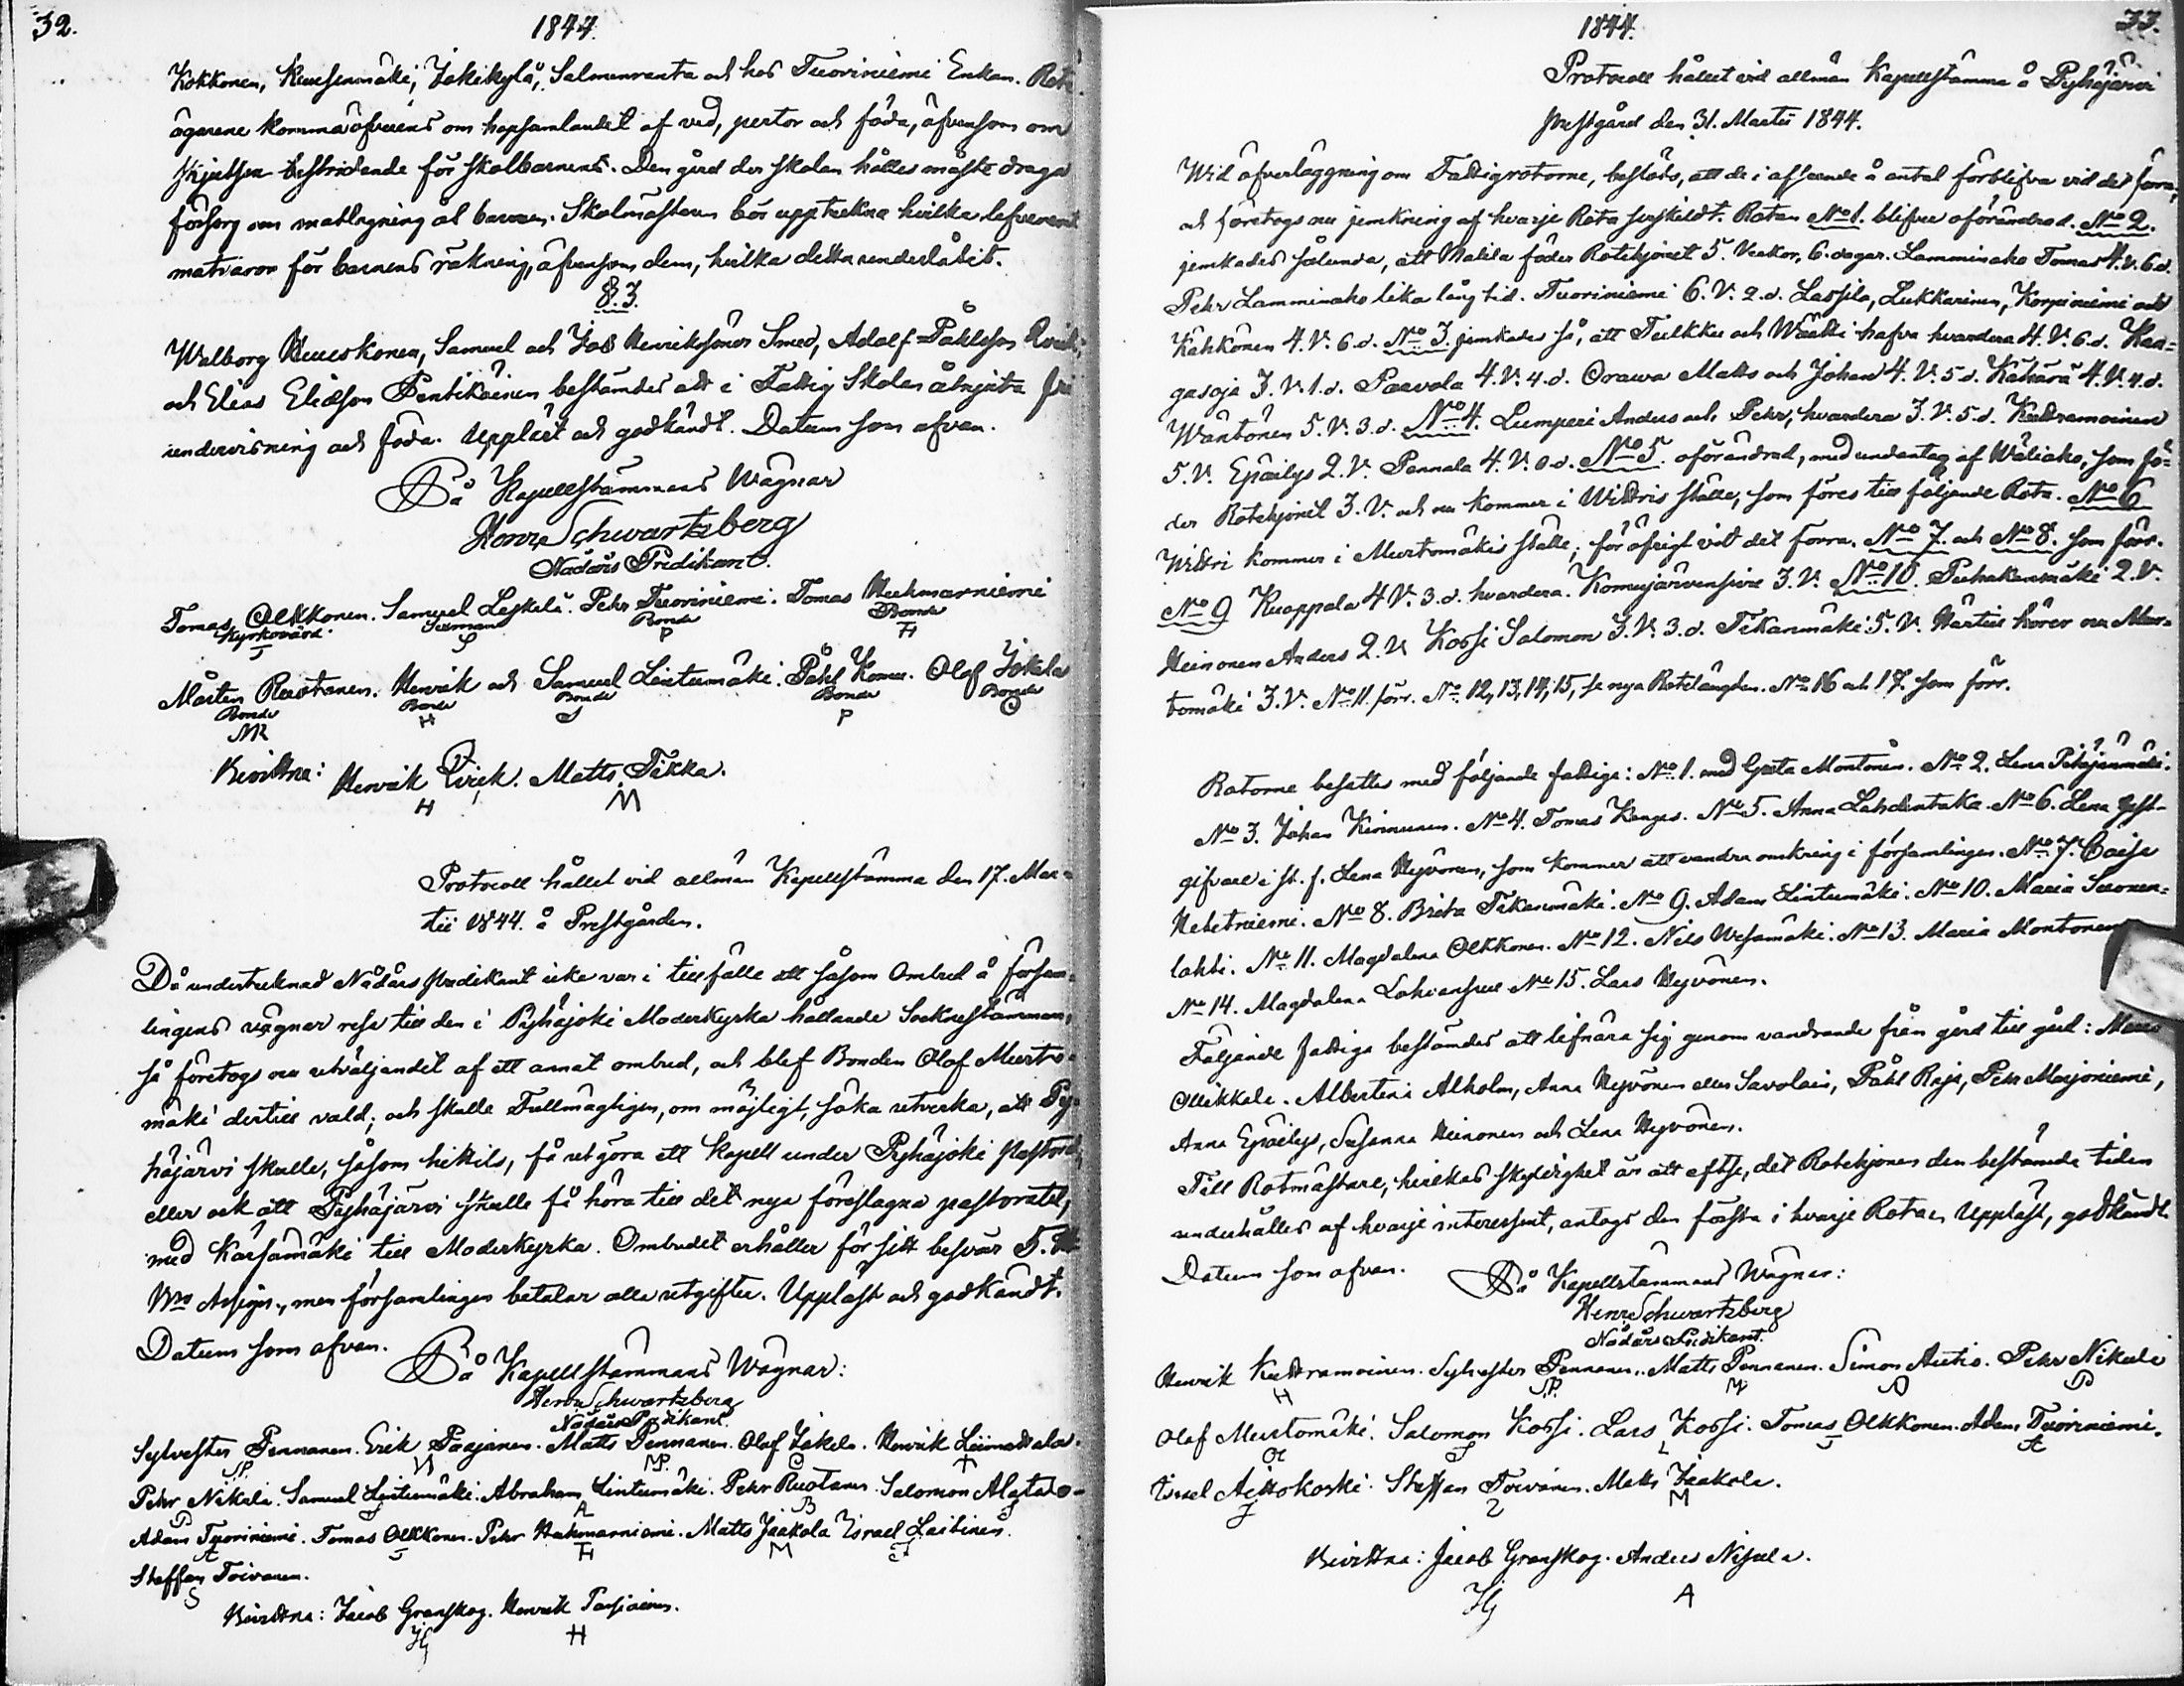 32.
1844.
Kokkonen, Kuusenmäki, Jokikylä, Salmenranta och hos Tuoriniemi Enkan. Rote
ägarene komma öfverens om hopsamlandet af ved, pertor och föda, äfvensom om
skjutsen bestridande för skolbarnens. Den gård der skolan hålles måste draga
försorg om matlagning åt barnen. Skolmästaren bör uppteckna hvilka lefvererat
matvaror för barnens räkning, äfvensom dem, hvilka detta underlåtit.
§.3.
Walborg Heuskonen, Samuel och Job Henrikssöner Smed, Adolf Påhlsson
och Elias Eliasson Pentikäinen bestämdes att i Fattig Skolan åtnjuta fri
undervisning och föda. Uppläst och godkändt. Datum som ofvan.
På Kapellstämmans Wägnar
Henr Schwartzberg
Nådårs Predikant.
Tomas Olkkonen. Samuel Leskelä. Pehr Tuoriniemi. Tomas Huhmarniemi
Kyrkovärd. Sexman Bonde Bonde
T S P TH
Mårten Ruotanen. Henrik och Samuel Lintumäki. Påhl Komu. Olof Jokela
Bonde Bonde Bonde Bonde Bonde
MR H S P O
Bevittna: Henrik Qvick. Matts Tikka.
H M
Protocoll hållet vid allmän Kapellstämma den 17. Mar-
tii 1844. å Prestgården.
Då undertecknad Nådårs predikant icke var i tillfälle att såsom Ombud å försam-
lingens vägnar resa till den i Pyhäjoki Moderkyrka hållande Sockenstämman,
så företogs nu utväljandet af ett annat ombud, och blef Bonden Olof Murto-
mäki dertill vald; och skulle Fullmägtigen, om möjligt, söka utverka, att Py-
häjärvi skulle, såsom hittils, få utgöra ett Kapell under Pyhäjoki Pastorat,
eller ock att Pyhäjärvi skulle få höra till det nya föreslagna pastoratet,
med Kärsämäki till Moderkyrka. Ombudet erhåller för sitt besvär 5.
Bco Assign., men församlingen betalar alla utgifter. Uppläst och godkändt.
Datum som ofvan.
På Kapellstämmans Wägnar:
Henr Schwartzberg
Nådårs Predikant.
Sylvester Pennanen. Erik Paajanen. Matts Pennanen. Olof Jokela. Henrik Liimattala.
SP. MP. O
Pehr Nikula. Samuel Lintumäki. Abraham Lintumäki. Pehr Ruotanen. Salomon Alatalo-
P S A B S
Adam Tuoriniemi. Tomas Olkkonen. Pehr Huhmarniemi. Matts Jaakola Israel Laitinen.
A T TH M J
Steffan Toivanen.
S
Bevittna: Jacob Granskog. Henrik Parsiainen.
JG H
1844.
33.
Protocoll hållet vid allmän Kapellstämma å Pyhäjärvi
Prestgård den 31. Martii 1844.
Wid öfverläggning om Fattigrotorne, beslöts, att de i afseende å antal förblifva vid det förra,
och företogs nu jemkning af hvarje Rota serskildt. Rotan No 1. blifver oförändrad. No 2.
jemkades sålunda, att Malila föder Rotehjonet 5. Veckor, 6. dagar. Lamminaho Tomas 4. v. 6 d.
Pehr Lamminaho lika lång tid. Tuoriniemi 6. V. 2. d. Lassila, Lukkarinen, Korpiniemi och
Kähkönen 4. V. 6 d. No 3. jemkades så, att Tulkku och Wäätti hafva hvardera 4. V. 6. d. Kan-
gasoja 3. V. 1. d. Paavola 4. V. 4. d. Orawa Matts och Johan 4. V. 5 d. Kähärä 4. V. 4. d.
Wäntönen 5. V. 3. d. No 4. Lumperi Anders och Pehr, hvardera 3. V. 5. d. Kuttramoinen
5. V. Epäilys 2. V. Pennala 4. V. 0 d. No 5. oförändrad, med undantag af Wäliaho, som fö-
der Rotehjonet 3. V. och nu kommer i Wittris ställe, som föres till följande Rota. No 6
Wittri kommer i Murtomäkis ställe; för öfrigt vid det förra. No 7. och No 8. som förr.
No 9 Kuoppala 4 V. 3. d. hvardera. Komujärvensuu 3. V. No 10. Puhakanmäki 2. V.
Heinonen Anders 2. V. Kossi Salomon 3. V. 3. d. Tikanmäki 5. V. Härtis hörer nu Mur-
tomäki 3. V. No 11. förr. No 12, 13, 14, 15, se nya Rotelängden. No 16 och 17. som förr.
Rotorne besattes med följande fattiga: No 1. med Greta Montonen. No 2. Lena Pitkjänmäki.
No 3. Johan Kinnunen. No 4. Tomas Kenges. No 5. Anna Lahdentaka. No 6. Lena Gest-
gifvare i st. f. Lena Hyvönen, som kommer att vandra omkring i församlingen. No 7. Caisa
Hetetniemi. No 8. Brita Tikanmäki. No 9. Adam Lintumäki. No 10. Maria Suonen-
lahti. No 11. Magdalena Olkkonen. No 12. Nils Wesamäki. No 13. Maria Montonen
No 14. Magdalena Lohiansuu No 15. Lars Hyvönen.
Följande fattiga bestämdes att lifnära sig genom vandrande från gård till gård: Maria
Ollikkala. Albertina Alholm, Anna Hyvönen eller Savolain, Påhl Raja, Pehr Marjoniemi,
Anna Epäilys, Susanna Heinonen och Lena Hyvönen.
Till Rotmästare, hvilkas skyldighet är att eftse, det Rotehjonen den bestämda tiden
underhålles af hvarje interessent, antogs den första i hvarje Rota. Uppläst, godkändt
Datum som ofvan.
På Kapellstämmans Wägnar:
Henr Schwartzberg
Nådårs Predikant.
Henrik Kuttramoinen. Sylvester Pennanen. Matts Pennanen. Simon Autio. Pehr Nikula
H SP. M S P
Olof Murtomäki. Salomon Kossi. Lars Kossi. Tomas Olkkonen. Adam Tuoriniemi.
S L T A
Israel Aittokoski. Steffan Toivanen. Matts Jaakola.
J M
Bevittna: Jacob Granskog. Anders Nisula.
JG A